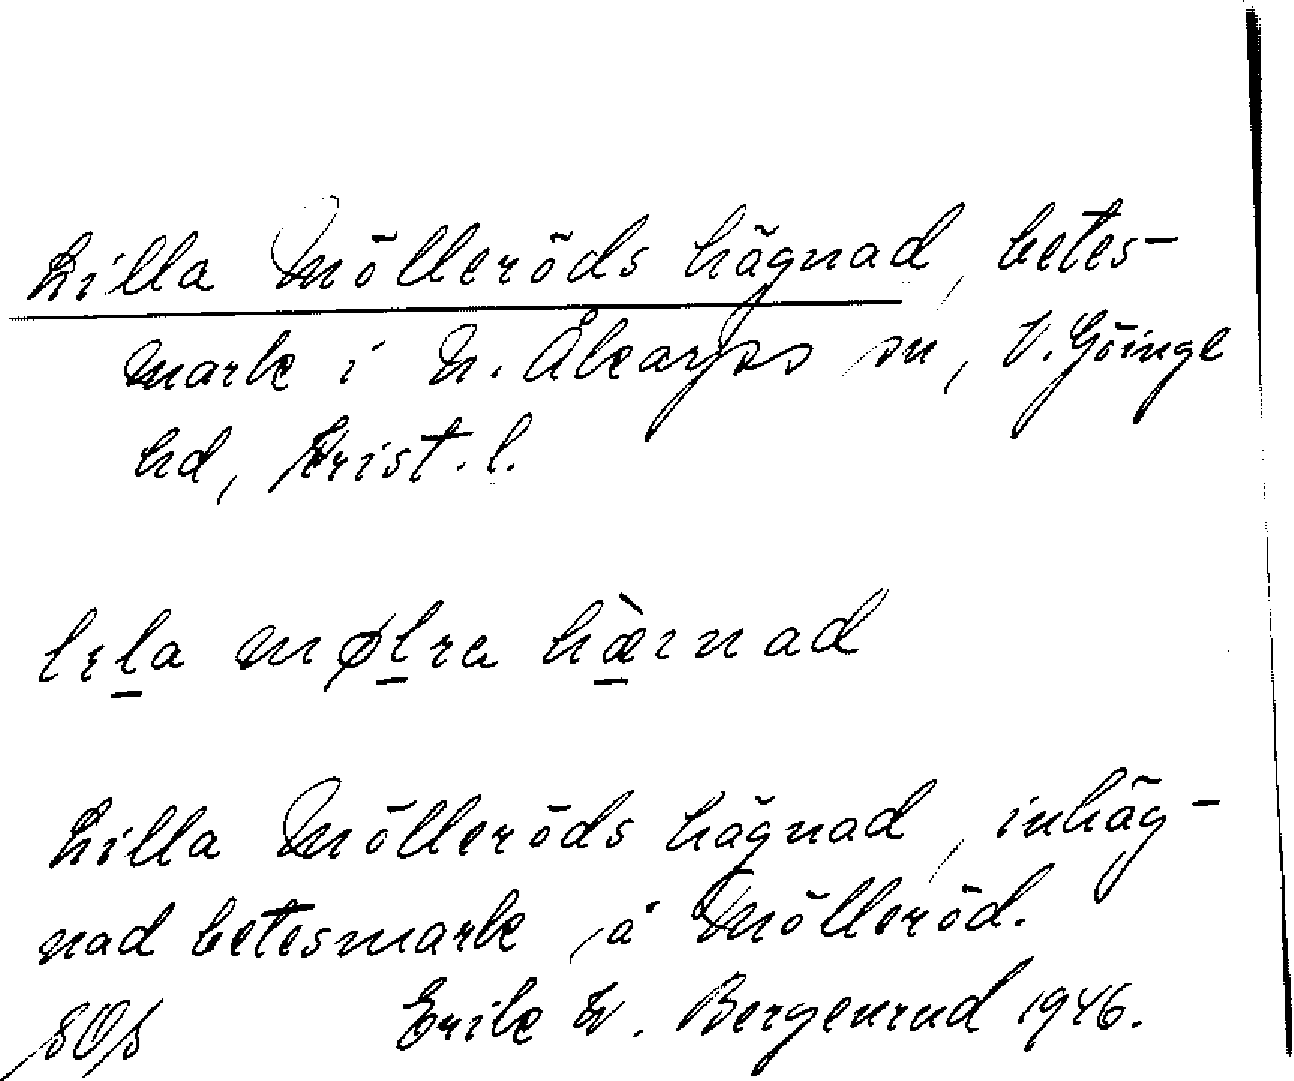 Lilla Mölleröds hägnad, betes-
mark i N. Åkarps sn, V. Göinge
hd, Krist. l.
lɪla mølra hæ̀ɪnad
Lilla Mölleröds hägnad, inhäg-
nad betesmark å Mölleröd.
Erik W. Bergenrud 1946.